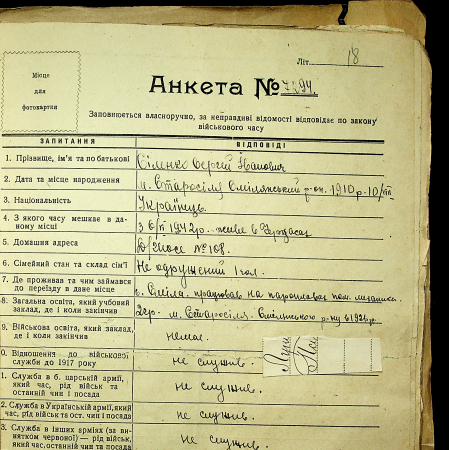 Літ. 18
Місце
для
фотокартки
Анкета № 7294.
Заповнюється власноручно, за неправдиві відомості відповідає по закону
військового часу
ЗАПИТАННЯ ВІДПОВІДІ
1. Прізвище, ім'я та по батькові Сіленко Сергій Іванович
2. Дата та місце народження м. Старосілля Смілянський р-он. 1910 р.
3. Національність Українець
4. З якого часу мешкає в да-
ному місці 1942 р. живе в Черкасах
5. Домашня адреса № 108.
6. Сімейний стан та склад сім'ї Не одружений 1 чол.
7. Де проживав та чим займався
до переїзду в дане місце Сміла. працював на
8. Загальна освіта, який учбовий
заклад, де і коли закінчив м. Старосілля
9. Військова освіта, який заклад,
де і коли закінчив немає.
0. Відношення до військової
служби до 1917 року не служив.
1. Служба в б. царській армії,
який час, рід військ та
останній чин і посада не служив.
2. Служба в Українській армії, який
час, рід військ та ост. чин і посада не служив
3. Служба в інших арміях (за ви-
нятком червоної) — рід військ,
який час, останній чин та посада не служив